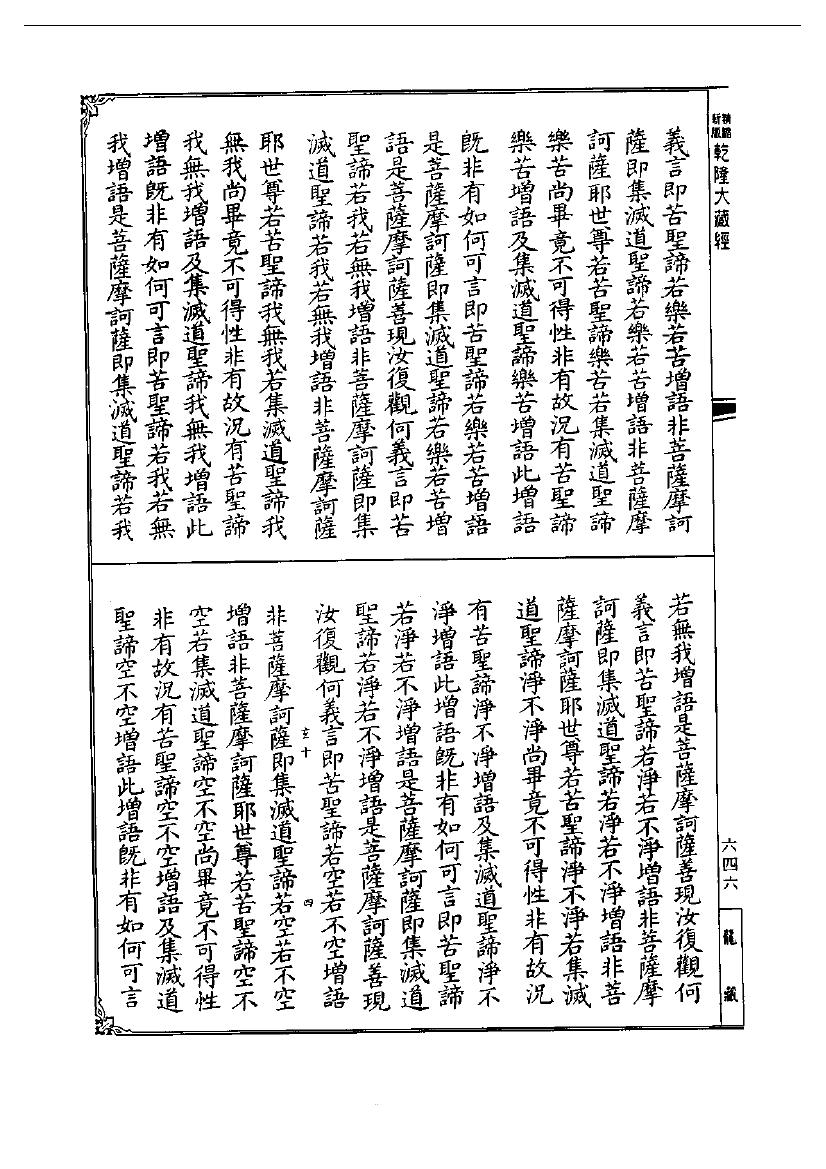 精縮新版
乾隆大藏經
義言即苦聖諦若樂若苦增語非菩薩摩訶
薩即集滅道聖諦若樂若苦增語非菩薩摩
訶薩耶世尊若苦聖諦樂苦若集滅道聖諦
樂苦尚畢竟不可得性非有故況有苦聖諦
樂苦增語及集滅道聖諦樂苦增語此增語
既非有如何可言即苦聖諦若樂若苦增語
是菩薩摩訶薩即集滅道聖諦若樂若苦增
語是菩薩摩訶薩善現汝復觀何義言即苦
聖諦若我若無我增語非菩薩摩訶薩即集
滅道聖諦若我若無我增語非菩薩摩訶薩
耶世尊若苦聖諦我無我若集滅道聖諦我
無我尚畢竟不可得性非有故況有苦聖諦
我無我增語及集滅道聖諦我無我增語此
增語既非有如何可言即苦聖諦若我若無
我增語是菩薩摩訶薩即集滅道聖諦若我
若無我增語是菩薩摩訶薩善現汝復觀何
義言即苦聖諦若淨若不淨增語非菩薩摩
訶薩即集滅道聖諦若淨若不淨增語非菩
薩摩訶薩耶世尊若苦聖諦淨不淨若集滅
道聖諦淨不淨尚畢竟不可得性非有故況
有苦聖諦淨不淨增語及集滅道聖諦淨不
淨增語此增語既非有如何可言即苦聖諦
若淨若不淨增語是菩薩摩訶薩即集滅道
聖諦若淨若不淨增語是菩薩摩訶薩善現
汝復觀何義言即苦聖諦若空若不空增語
玄十
四
非菩薩摩訶薩即集滅道聖諦若空若不空
增語非菩薩摩訶薩耶世尊若苦聖諦空不
空若集滅道聖諦空不空尚畢竟不可得性
非有故況有苦聖諦空不空增語及集滅道
聖諦空不空增語此增語既非有如何可言
六四六
龍藏